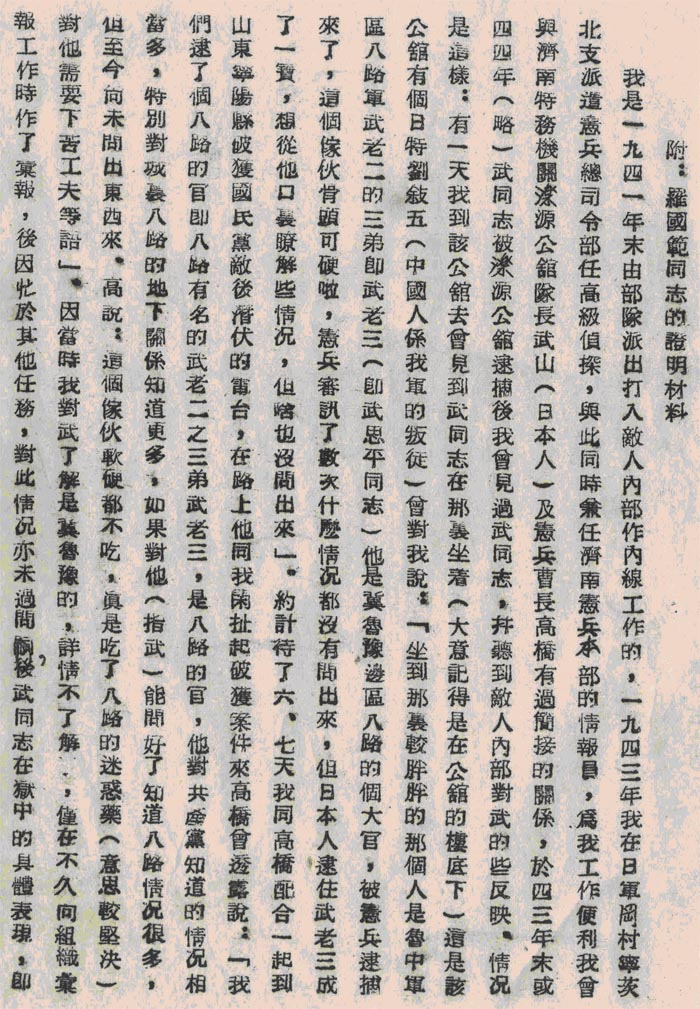 附：羅國範同志的證明材料
我是一九四一年末由部隊派出打入敵人內部作內線工作的，一九四三年我在日軍岡村寧茨
北支派遣憲兵總司令部任高級偵探，與此同時兼任濟南憲兵本部的情報員，爲我工作便利我會
與濟南特務機關濼源公舘隊長武山（日本人）及憲兵曹長高橋有過簡接的關係，於四三年末或
四四年（略）武同志被濼源公舘逮捕後我曾見過武同志，幷聽到敵人內部對武的些反映。情況
是這樣：有一天我到該公舘去曾見到武同志在那裏坐着（大意記得是在公舘的樓底下）這是該
公舘有個日特劉敍五（中國人係我軍的叛徒）曾對我說：「坐到那裏較胖胖的那個人是魯中軍
區八路軍武老二的三弟卽武老三（卽武思平同志）他是冀魯豫邊區八路的個大官，被憲兵逮捕
來了，這個傢伙骨頭可硬啦，憲兵審訊了數次什麼情况都沒有問出來，但日本人逮住武老三成
了一寶，想從他口裏瞭解些情况，但啥也沒問出來」。約計待了六、七天我同高橋配合一起到
山東寧陽縣破獲國民黨敵後潛伏的電台，在路上他同我閑扯起破獲案件來高橋曾透露說：「我
們逮了個八路的官卽八路有名的武老二之三弟武老三，是八路的官，他對共產黨知道的情況相
當多，特別對城裏八路的地下關係知道更多，如果對他（指武）能問好了知道八路情况很多，
但至今尚未問出東西來。高說：這個傢伙軟硬都不吃，眞是吃了八路的迷惑藥（意思較堅決）
對他需要下苦工夫等語」。因當時我對武了解是冀魯豫的，詳情不了解，僅在不久向組織彙
報工作時作了彙報，後因忙於其他任務，對此情况亦未過問，後武同志在獄中的具體表現，卽